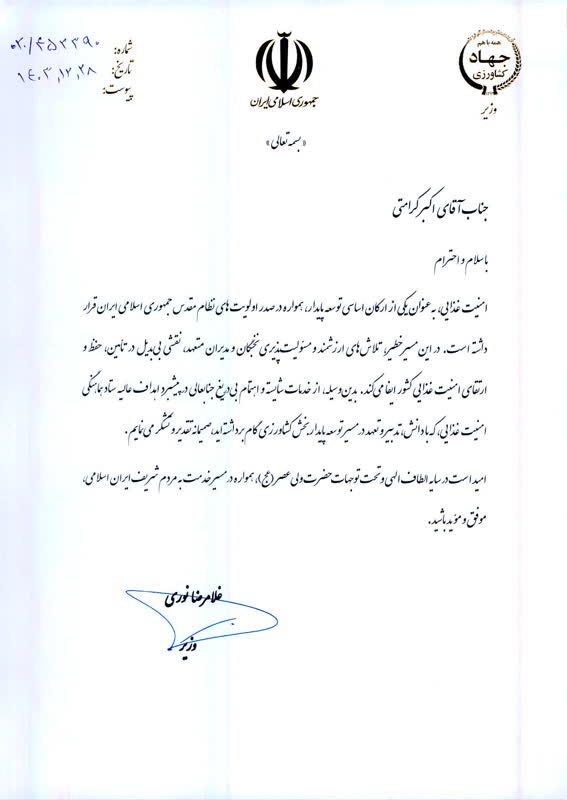 شماره: ۰۲۰/۴۵۳۳۹۰
تاریخ: ۱۴۰۳,۱۲,۲۸
پیوست:
جمهوری اسلامی ایران
همه با هم
جهاد
کشاورزی
وزیر
«بسمه تعالی»
جناب آقای اکبر کرامتی
با سلام و احترام
امنیت غذایی، به عنوان یکی از ارکان اساسی توسعه پایدار، همواره در صدر اولویت های نظام مقدس جمهوری اسلامی ایران قرار
داشته است. در این مسیر خطیر، تلاش های ارزشمند و مسئولیت پذیری نخبگان و مدیران متعهد، نقشی بی بدیل در تامین، حفظ و
ارتقای امنیت غذایی کشور ایفا می کند. بدین وسیله، از خدمات شایسته و اهتمام بی دریغ جنابعالی در پیشبرد اهداف عالیه ستاد هماهنگی
امنیت غذایی، که با دانش، تدبیر و تعهد در مسیر توسعه پایدار بخش کشاورزی گام برداشته اید، صمیمانه تقدیر و تشکر می نمایم.
امید است در سایه الطاف الهی و تحت توجهات حضرت ولی عصر (عج)، همواره در مسیر خدمت به مردم شریف ایران اسلامی،
موفق و موید باشید.
غلامرضا نوری
وزیر